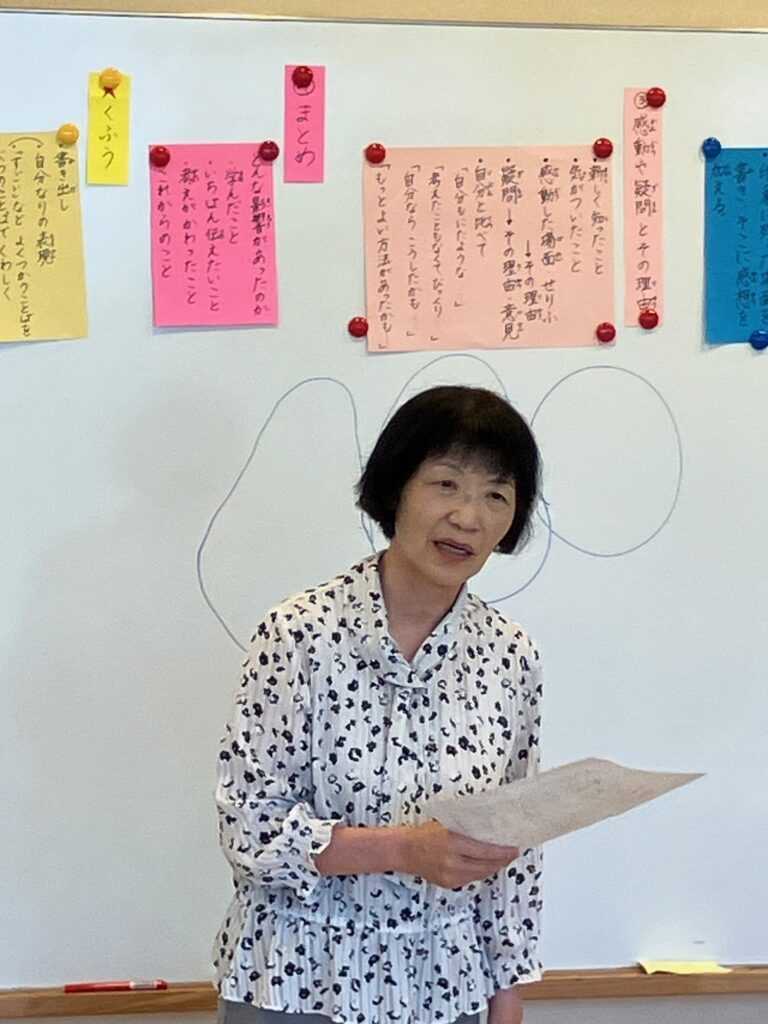 書き、そこに感想を
加える
③感動や疑問とその理由
・新しく知ったこと
・気がついたこと
・感動した場面 せりふ
→その理由
・疑問→その理由・意見
・自分と比べて
「自分もにたような 」
「考えたこともなくてびっくり
「自分なら こうしたかも…
「もっとよい方法があったかも…」
まとめ
どんな影響があったのか
・学んだこと
・いちばん伝えたいこと
・考えがかわったこと
・これからのこと
★くふう
・書き出し
・自分なりの表現
(「すごい」など よくつかうことばを
べつのことばで くわしく